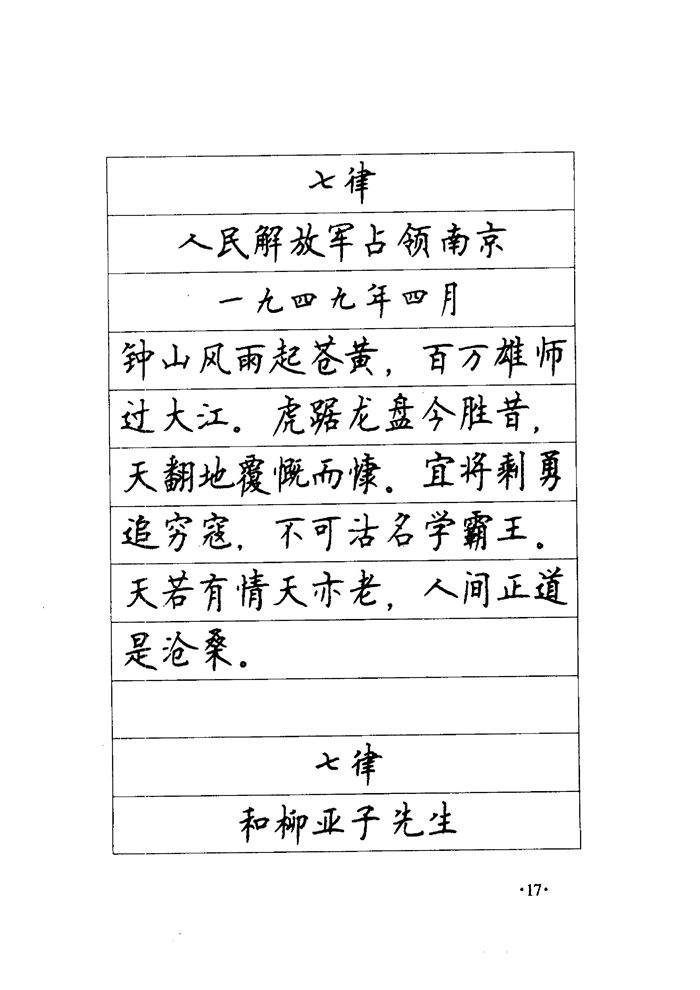 七律
人民解放军占领南京
一九四九年四月
钟山风雨起苍黄，百万雄师
过大江。虎踞龙盘今胜昔，
天翻地覆慨而慷。宜将剩勇
追穷寇，不可沽名学霸王。
天若有情天亦老，人间正道
是沧桑。
七律
和柳亚子先生
·17·